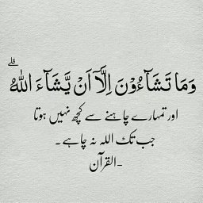 وَمَا تَشَآءُوْنَ اِلَّاۤ اَنْ يَّشَآءَ اللّٰهُ ؕ
اور تمہارے چاہنے سے کچھ نہیں ہوتا
جب تک اللہ نہ چاہے۔
-القرآن